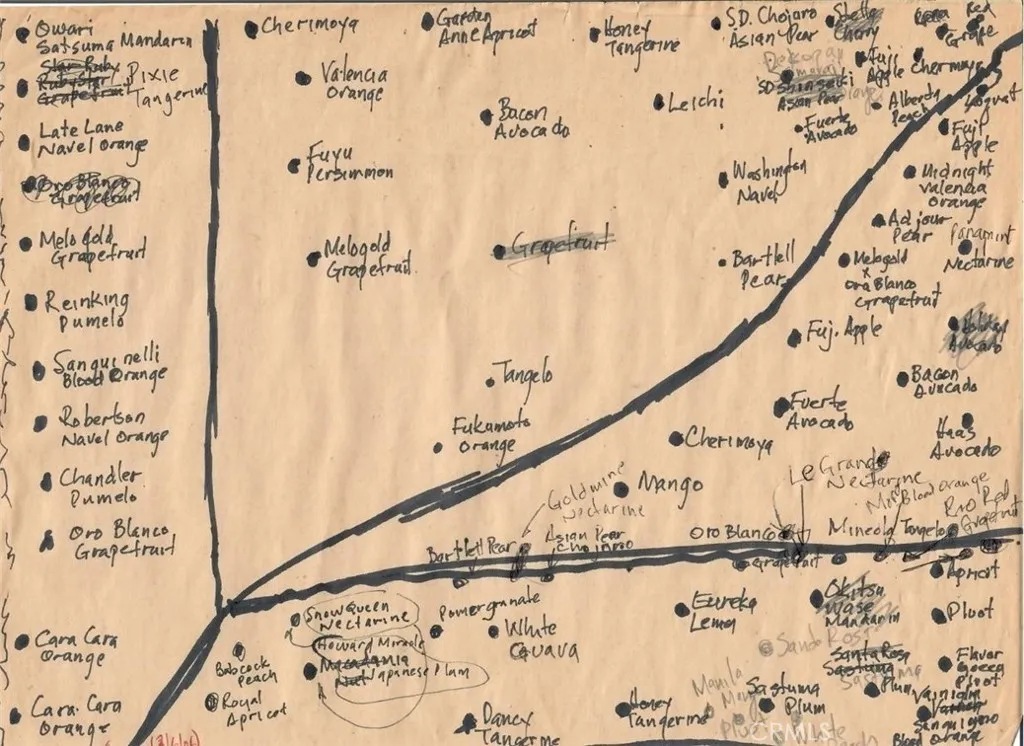 Owari
Satsuma Mandarin
Star Ruby
Rubystar Pixie
Grapefruit Tangerine
Late Lane
Navel Orange
Oro Blanco
Grapefruit
Melo Gold
Grapefruit
Reinking
Pumelo
Sanguinelli
Blood Orange
Robertson
Navel Orange
Chandler
Pumelo
Oro Blanco
Grapefruit
Cara Cara
Orange
Cara Cara
Orange
Cherimoya
Valencia
Orange
Fuyu
Persimmon
Melogold
Grapefruit
Garden
Anne Apricot
Bacon
Avocado
Grapefruit
Tangelo
Fukamoto
Orange
Honey
Tangerine
Leichi
S.D. Chojuro
Asian Pear
SD Shinseiki
Asian Pear
Fuerte
Avocado
Washington
Navel
Bartlell
Pear
Stella
Cherry
Fuji
Apple
Alberta
Peach
Red
Grape
Cherimoya
Loquat
Fuji
Apple
Midnight
Valencia
Orange
Adjour
Pear
Paramint
Nectarine
Melogold
x
Oro Blanco
Grapefruit
Fuj. Apple
Avocado
Bacon
Avocado
Fuerte
Avocado
Haas
Avocado
Cherimoya
Mango
Le Grand
Nectarine
Blood Orange
Rio Red
Grapefruit
Mineola Tangelo
Oro Blanco
Grapefruit
Goldmine
Nectarine
Asian Pear
Chojuro
Bartlett Pear
Snow Queen
Nectarine
Howard Miracle
Macadamia
Nut Japanese Plum
Babcock
Peach
Royal
Apricot
Pomergranate
White
Guava
Dancy
Tangerine
Eureka
Lemon
Honey
Tangerine
Manila
Sastuma
Plum
Okitsu
Wase
Mandarin
Santa Rosa
Santa Rosa
Sastuma
Plum
Apricot
Pluot
Flavor
Pluot
Blood Orange
CRMLS